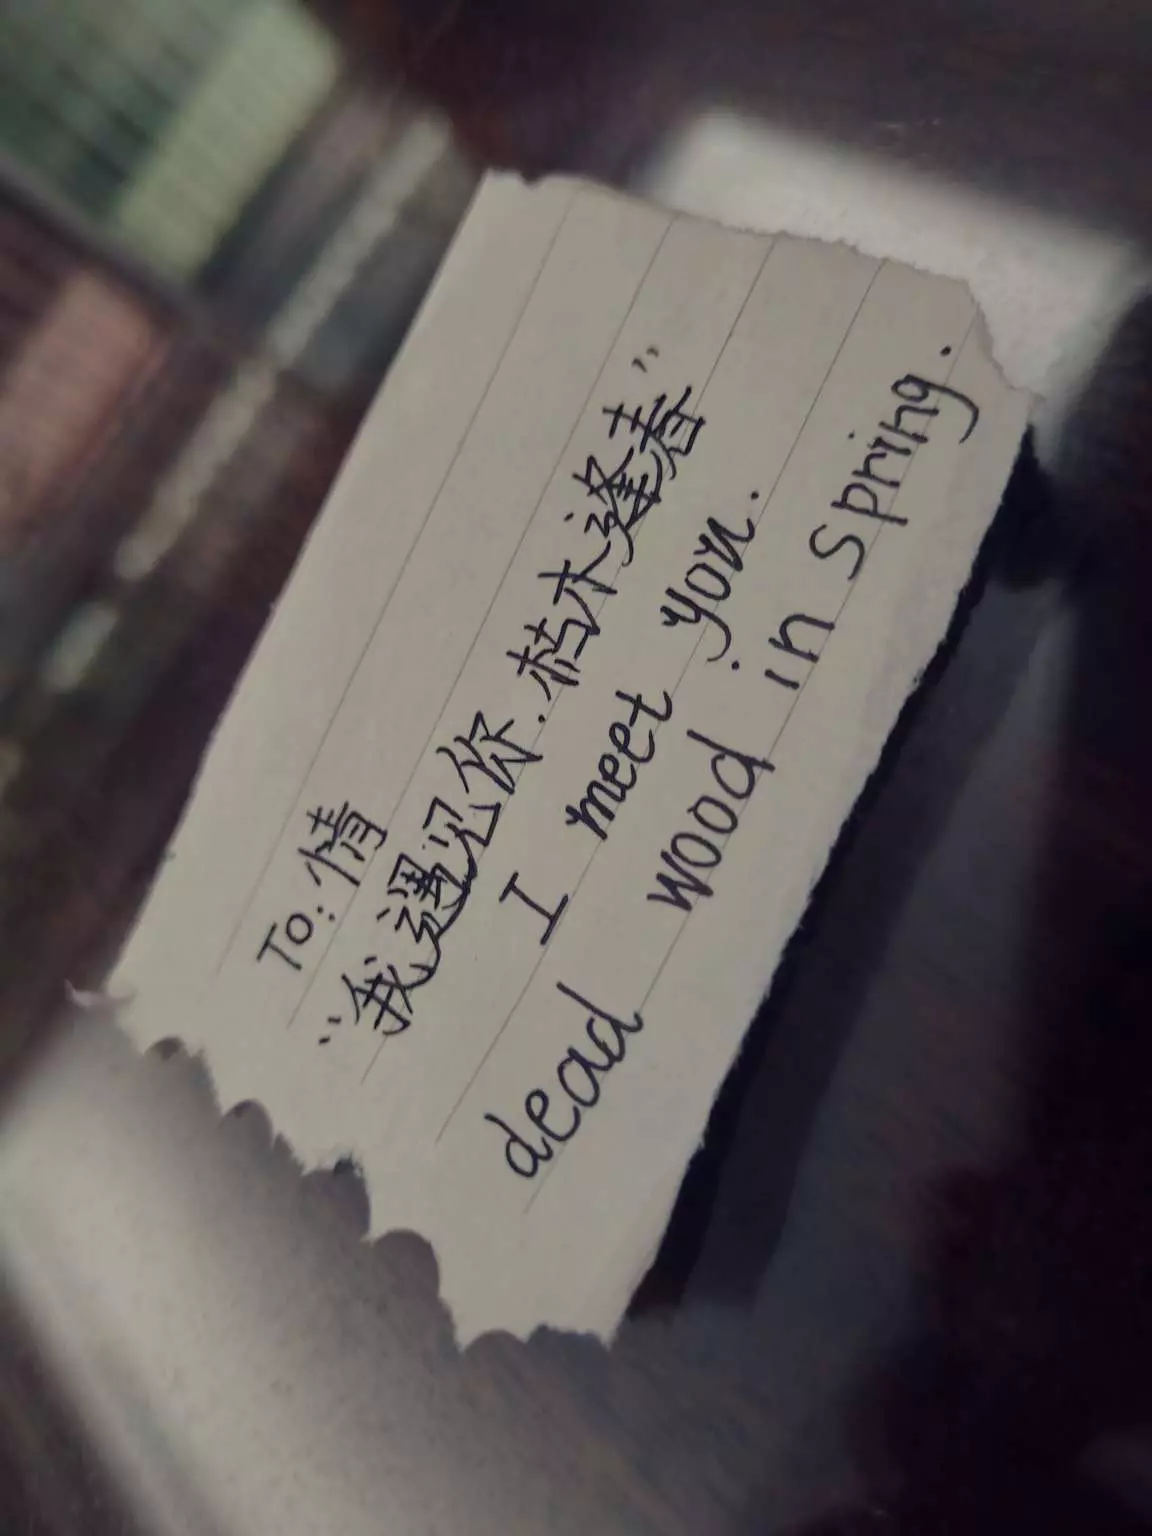 To: 情
“我遇见你.枯木逢春”
I meet you.
dead wood in spring.